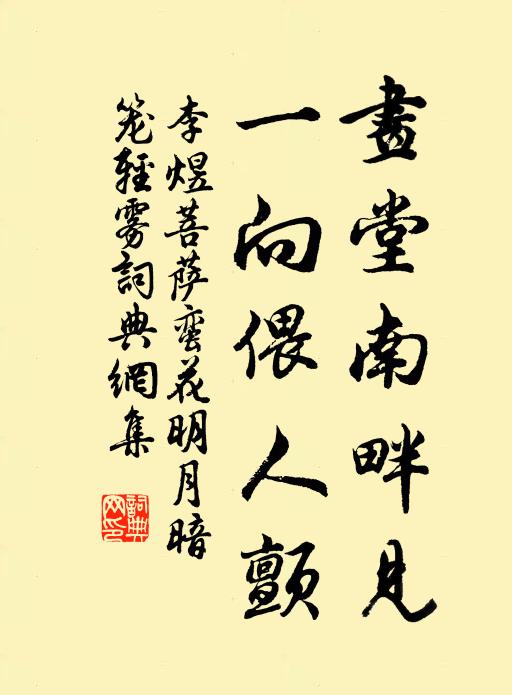 畫堂南畔見
一向偎人顫
李煜菩薩蠻花明月暗
笼輕雾詞典網集
詞典網印